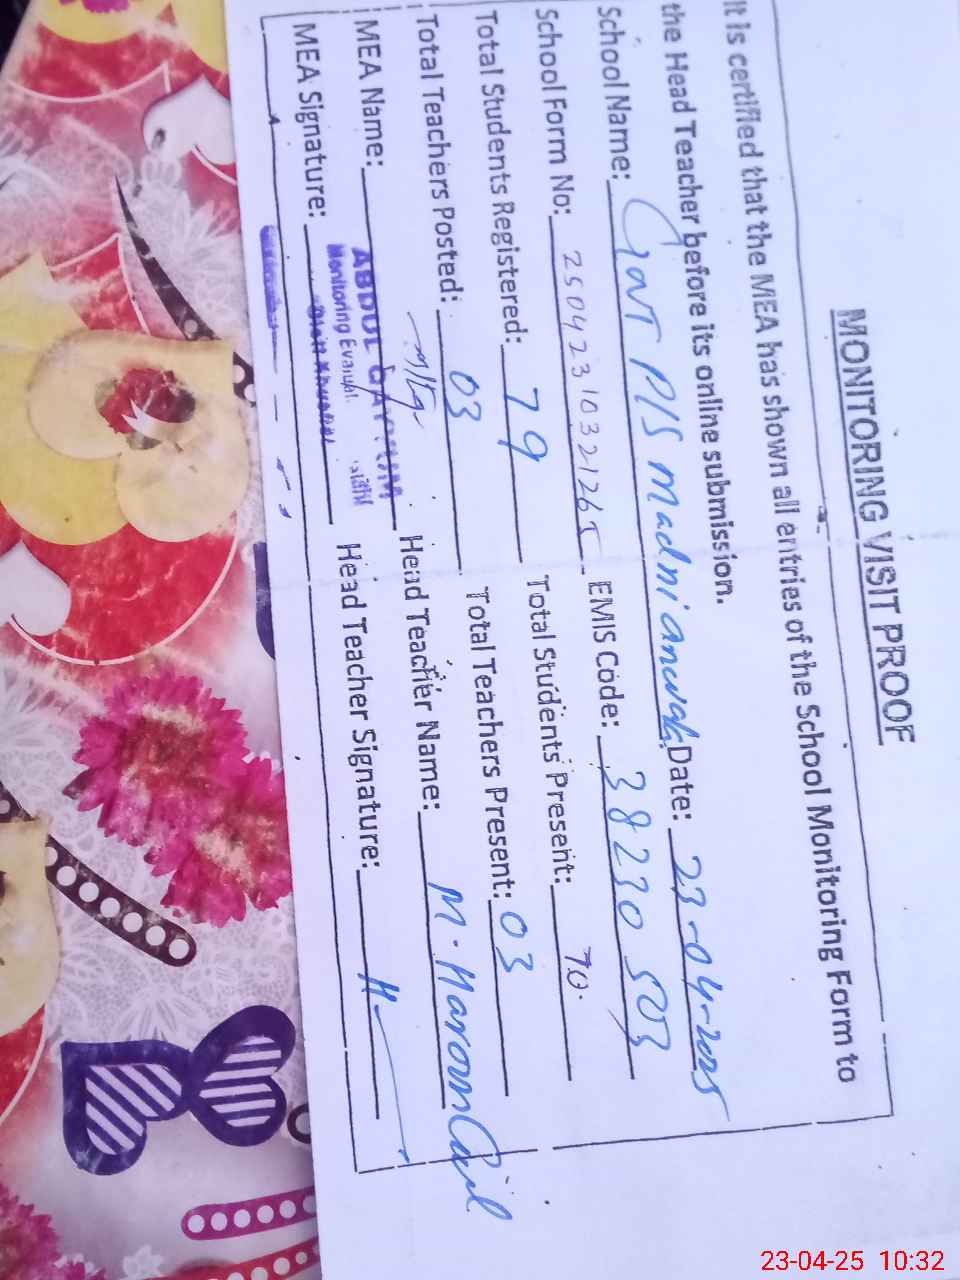 MONITORING VISIT PROOF
It is certified that the MEA has shown all entries of the School Monitoring Form to
the Head Teacher before its online submission.
School Name: Govt P/S Madni Date: 23-04-2025
School Form No: 25042310321265 EMIS Code: 38230503
Total Students Registered: 79 Total Students Present: 70.
Total Teachers Posted: 03 Total Teachers Present: 03
MEA Name: ABDUL QAYOUM Head Teacher Name: M. Haroon
Monitoring
MEA Signature: Head Teacher Signature: H
23-04-25 10:32